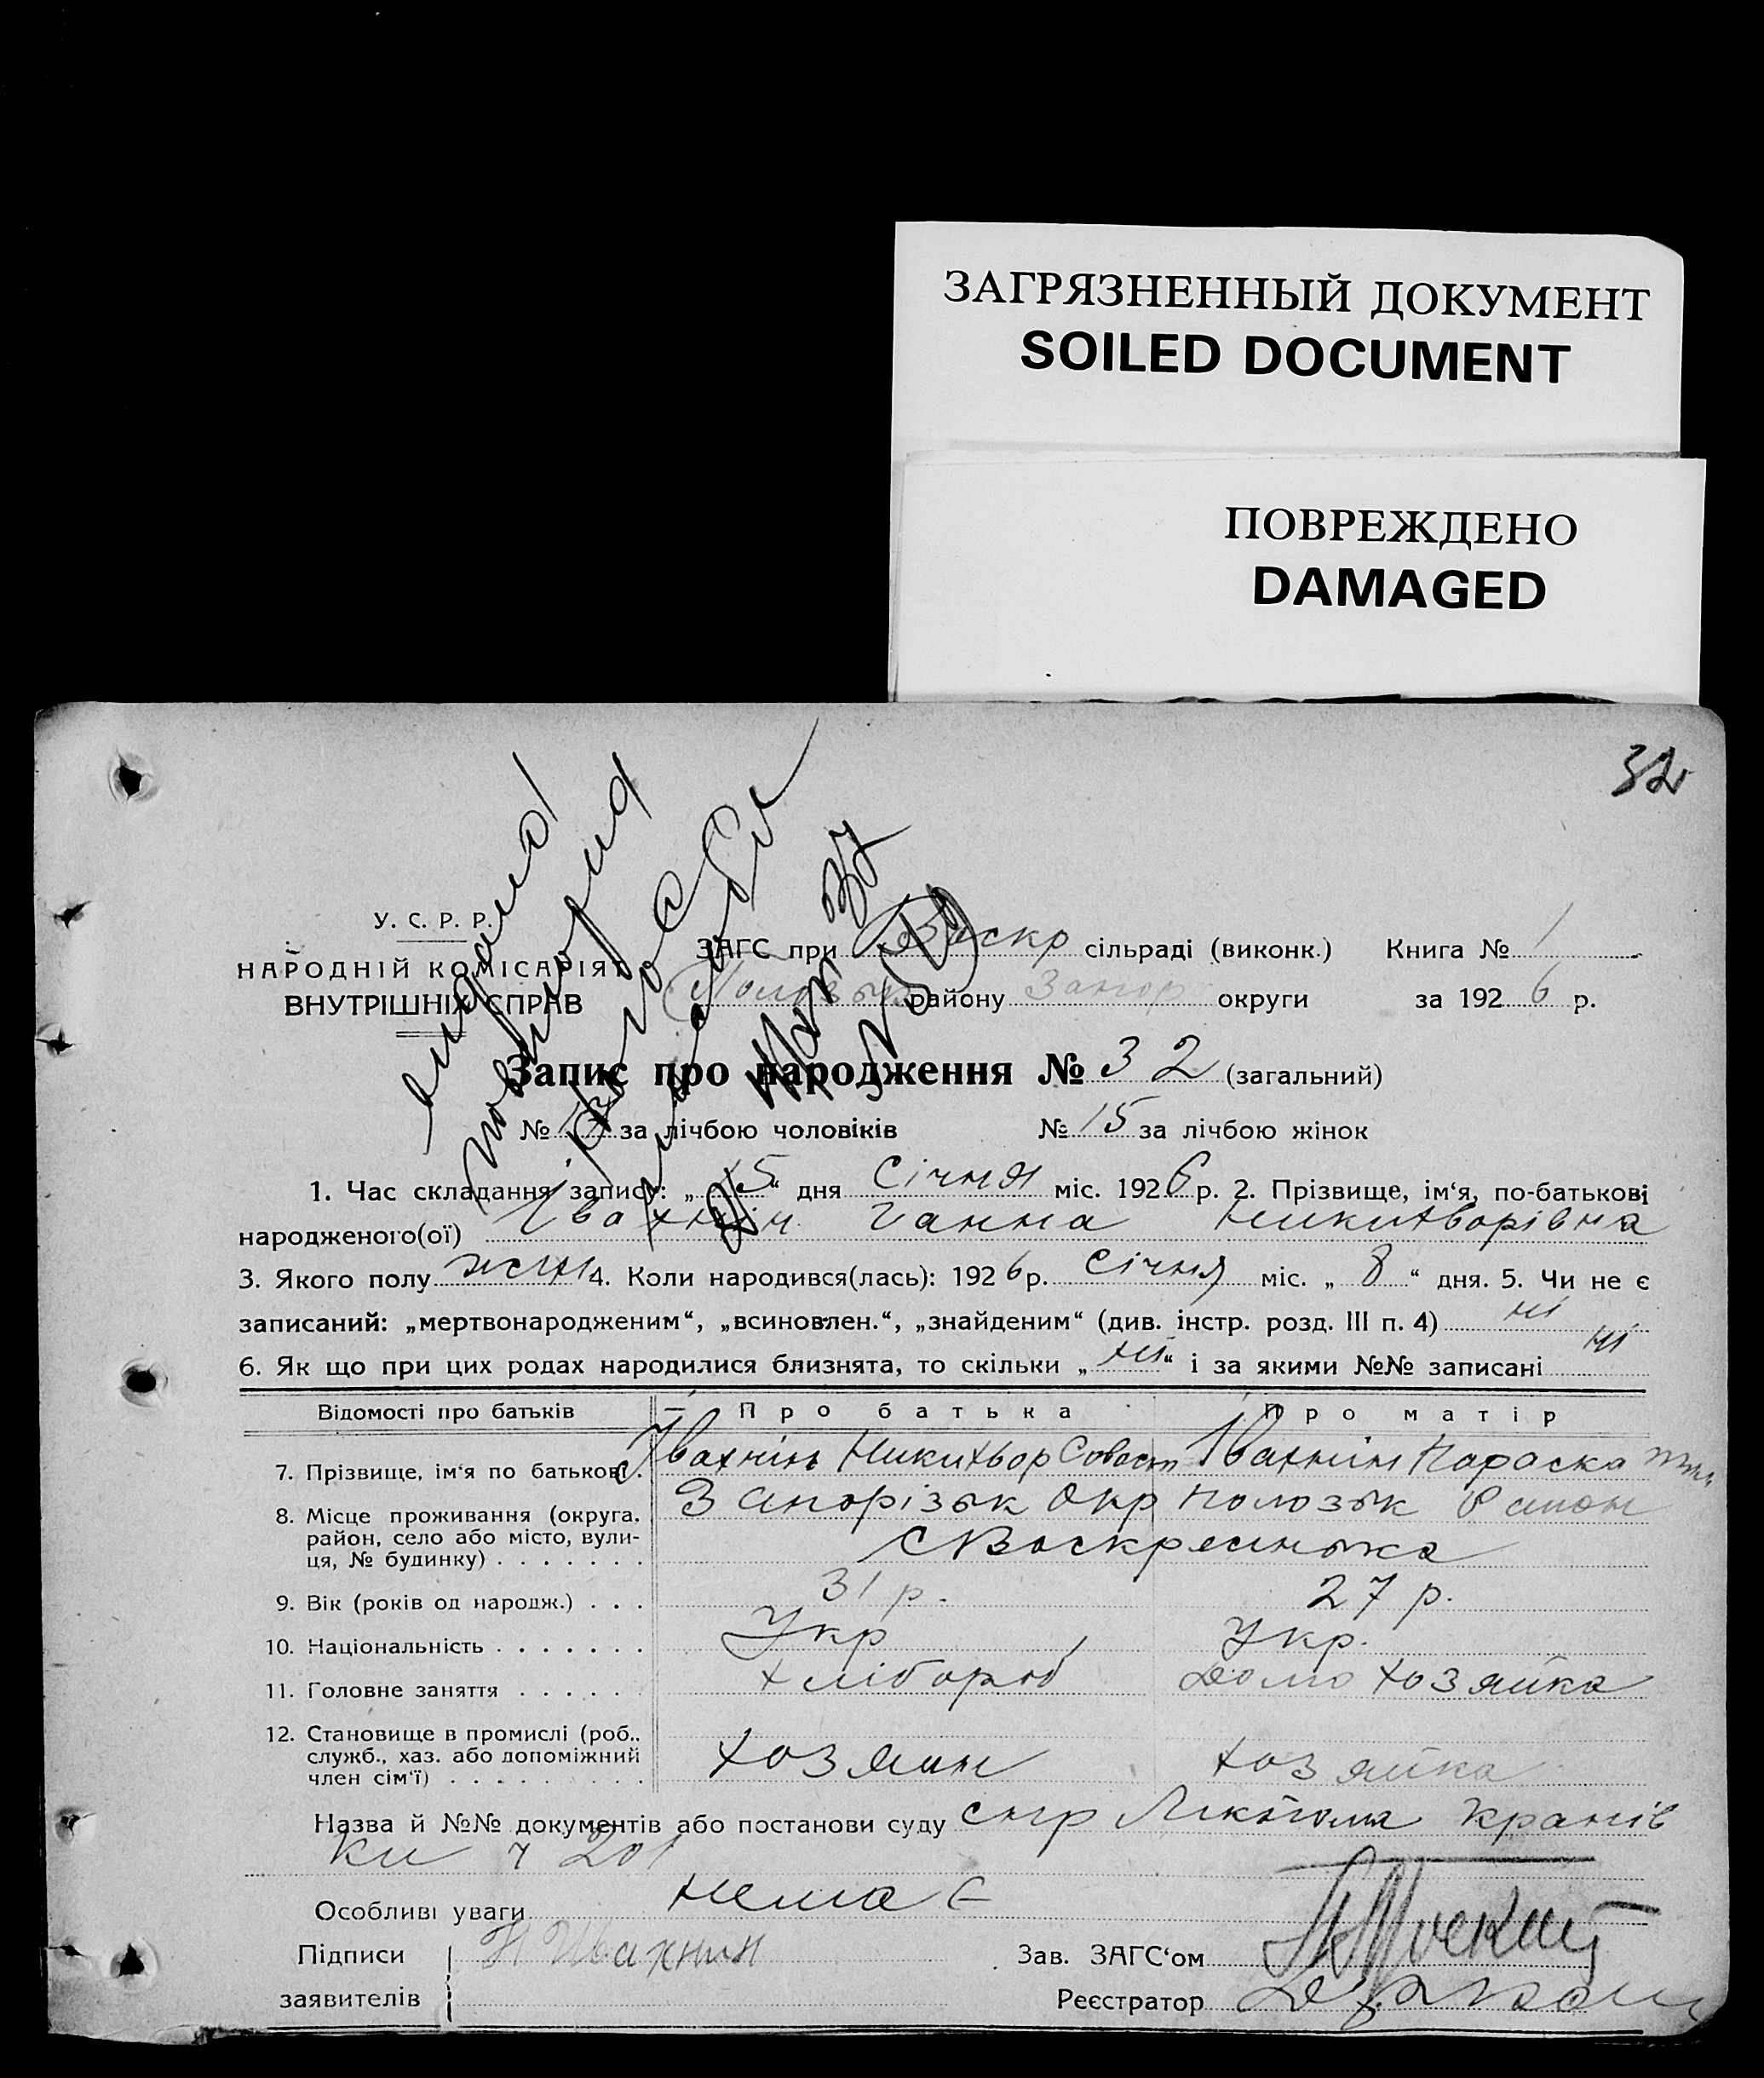 ЗАГРЯЗНЕННЫЙ ДОКУМЕНТ
SOILED DOCUMENT
ПОВРЕЖДЕНО
DAMAGED
32
У. С. Р. Р.
НАРОДНІЙ КОМІСАРІЯТ
ВНУТРІШНІХ СПРАВ
ЗАГС при Воскр сільраді (виконк.) Книга № 1
району Запор округи за 1926 р.
Запис про народження № 32 (загальний)
№ 17 за лічбою чоловіків № 15 за лічбою жінок
1. Час складання запису: „15“ дня Січня міс. 1926 р. 2. Прізвище, ім‘я, по-батькові
народженого(ої) Івахнін Ганна Никихворівна
3. Якого полу жін 4. Коли народився(лась): 1926 р. Січня міс. „8“ дня. 5. Чи не є
записаний: „мертвонародженим“, „всиновлен.“, „знайденим“ (див. інстр. розд. III п. 4) ні
6. Як що при цих родах народилися близнята, то скільки „ні“ і за якими №№ записані ні
Відомості про батьків Про батька Про матір
7. Прізвище, ім‘я по батькові. Івахнінь Никихвор Івахнін Параска
8. Місце проживання (округа, район, село або місто, вули-ця, № будинку) Запорізьк Окр Полозьк Район
с Воскресинька
9. Вік (років од народж.) 31 р. 27 р.
10. Національність Укр Укр.
11. Головне заняття хлібороб домохозяйка
12. Становище в промислі (роб., служб., хаз. або допоміжний член сім‘ї) хозяин хозяйка
Назва й №№ документів або постанови суду
ки ч 201
Особливі уваги немає
Підписи Н Ивахнин Зав. ЗАГС‘ом
заявителів Реєстратор